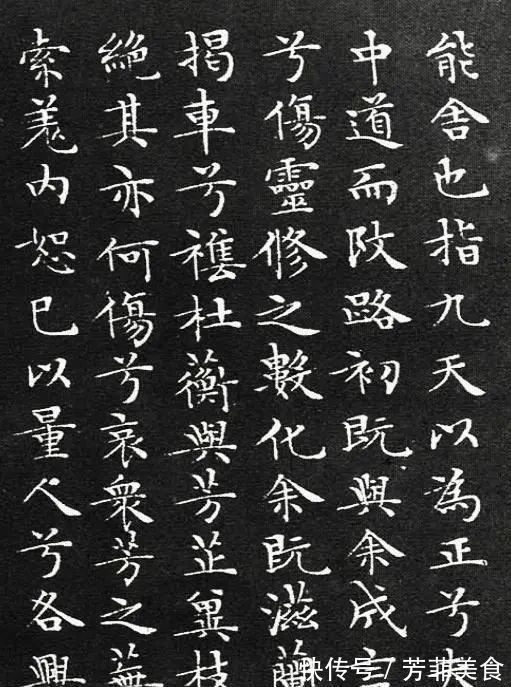 能舍也指九天以為正兮
中道而改路初既與余成言
兮傷靈修之數化余既滋蘭
揭車兮雜杜蘅與芳芷冀枝
絕其亦何傷兮哀衆芳之蕪
索羌内恕己以量人兮各興
快传号 / 芳菲美食